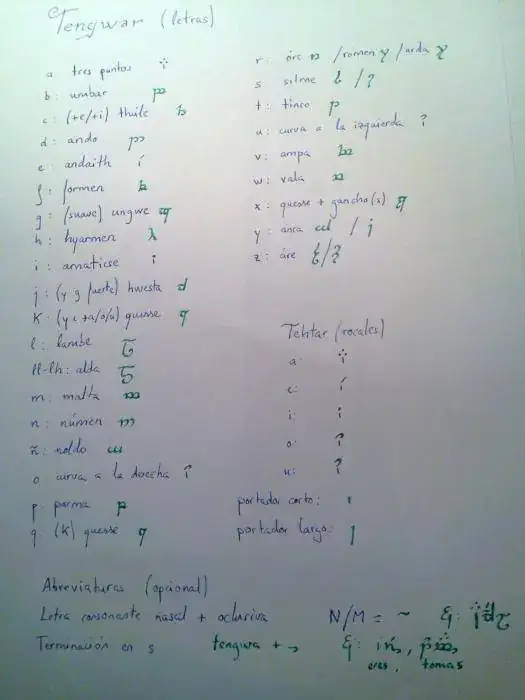 Tengwar (letras)
a tres puntos
b: umbar
c: (+e/+i) thúle
d: ando
e: andaith
f: formen
g: (suave) ungwe
h: hyarmen
i: amaticse
j: (y g fuerte) hwesta
K: (y c +a/o/u) quesse
l: lambe
ll-lh: alda
m: malta
n: númen
ñ: noldo
o curva a la derecha
p: parma
q: (K) quesse
r: óre /romen /arda
s silme /
t: tinco
u: curva a la izquierda
v: ampa
w: vala
x: quesse + gancho(s)
y: anca /
z: áre /
Tehtar (vocales)
a:
e:
i:
o:
u:
portador corto:
portador largo:
Abreviaturas (opcional)
Letra consonante nasal + oclusiva N/M = ~ Ej:
Terminación en s tengwa + Ej: ,
eres, tomas